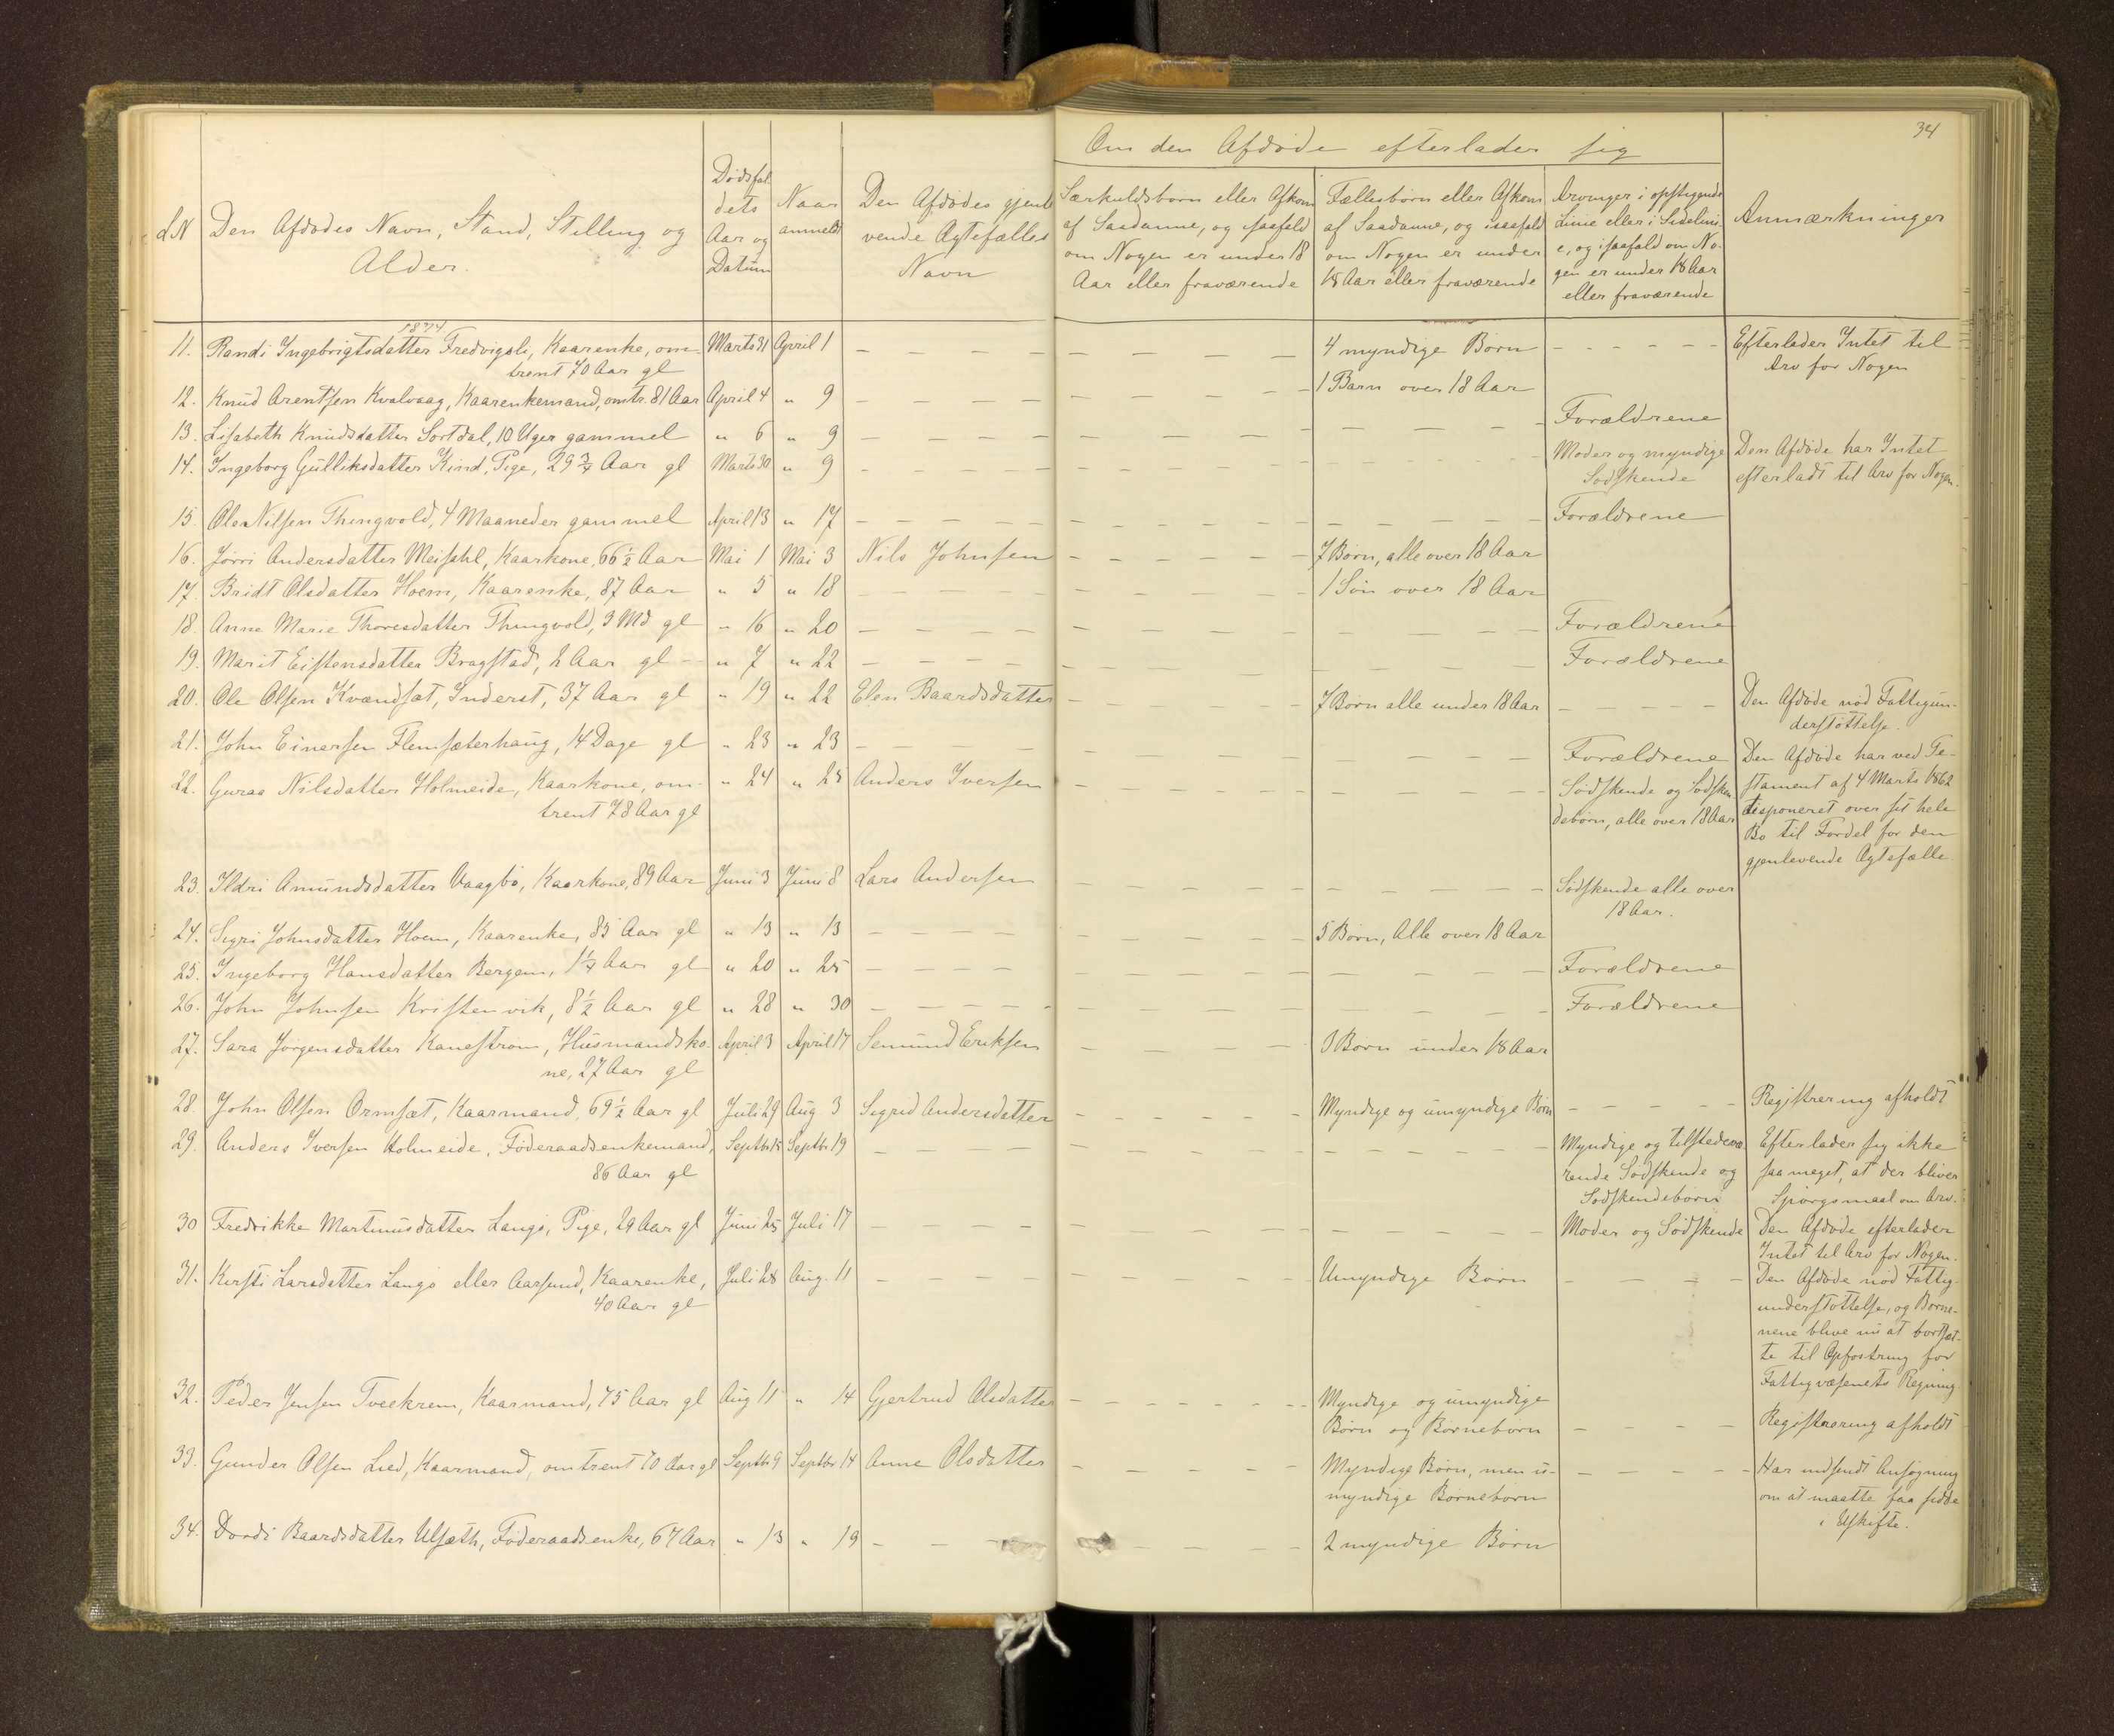 34
Om den Afdøde efterlader sig
L.N Den Afdødes Navn, Stand, Stilling og Alder.
Dødsfaldets Aar og Datum
Naar anmeldt
Den Afdødes gjenlevende Agtefælles Navn
Særkuldsbørn eller Afkom af Saadanne, og isaafald om Nogen er under 18 Aar eller fraværende
Fællesbørn eller Afkom af Saadanne, og isaafald om Nogen er under 18 Aar eller fraværende
Arvinger i opstigende Linie eller i Sidelinie, og isaafald om Nogen er under 18 Aar eller fraværende
Anmærkninger
1874.
11. Randi Ingebrigtsdatter Fredvigsli, Kaarenke, om- Marts 31 April 1 4 myndige Børn Efterlader Intet til
trent 70 Aar gl Arv for Nogen
12. Knud Arentsen Kvalvaag, Kaarenkemand, omtr. 81 Aar April 4 " 9 1 Barn over 18 Aar
13. Lisabeth Knudsdatter Sortdal, 10 Uger gammel " 6 " 9 Forældrene
14. Ingeborg Gulliksdatter Kind, Pige, 29 3/4 Aar gl Marts 30 " 9 Moder og myndige Den Afdøde har Intet
Sødskende efterladt til Arv for Nogen.
15. Ole Nilsen Thingvold, 4 Maaneder gammel April 13 " 17 Forældrene
16. Jørri Andersdatter Meisahl, Kaarkone, 66 1/2 Aar Mai 1 Mai 3 Nils Johnsen 7 Børn, alle over 18 Aar
17. Bridt Olsdatter Hoem, Kaarenke, 87 Aar " 5 " 18 1 Søn over 18 Aar
18. Anne Marie Thoresdatter Thingvold, 3 Md gl " 16 " 20 Forældrene
19. Marit Eistensdatter Bragstad, 2 Aar gl " 7 " 22 Forældrene
20. Ole Olsen Kvændsæt, Inderst, 37 Aar gl " 19 " 22 Elen Baardsdatter 7 Børn alle under 18 Aar Den Afdøde nød Fattigun-
derstøttelse.
21. John Einersen Flemsæterhaug, 14 Dage gl " 23 " 23 Forældrene
22. Guraa Nilsdatter Holmeide, Kaarkone, om- " 24 " 25 Anders Iversen Sødskende og Sødsken- Den Afdøde har ved Te-
trent 78 Aar gl debørn, alle over 18 Aar stament af 4 Marts 1862
disponeret over sit hele
Bo til Fordel for den
gjenlevende Agtefælle
23. Ildri Amundsdatter Vaagbø, Kaarkone, 89 Aar Juni 3 Juni 8 Lars Andersen Sødskende alle over
18 Aar.
24. Sigri Johnsdatter Hoem, Kaarenke, 85 Aar gl " 13 " 13 5 Børn, Alle over 18 Aar
25. Ingeborg Hansdatter Bergem, 1 1/4 Aar gl " 20 " 25 Forældrene
26. John Johnsen Kristenvik, 8 1/2 Aar gl " 28 " 30 Forældrene
27. Sara Jørgensdatter Kanestrøm, Husmandsko- April 3 April 17 Semund Eriksen 3 Børn under 18 Aar
ne, 27 Aar gl
28. John Olsen Ormsæt, Kaarmand, 69 1/2 Aar gl Juli 29 Aug 3 Sigrid Andersdatter Myndige og umyndige Børn Registrering afholdt
29. Anders Iversen Holmeide, Føderaadsenkemand, Septbr 15 Septbr 19 Myndige og tilstedevæ- Efterlader sig ikke
86 Aar gl rende Sødskende og saa meget, at der bliver
Sødskendebørn Spørgsmaal om Arv.
30 Fredrikke Martinusdatter Langø, Pige, 29 Aar gl Juni 25 Juli 17 Moder og Sødskende Den Afdøde efterlader
Intet til Arv for Nogen.
31. Kirsti Larsdatter Langø eller Aarsund, Kaarenke, Juli 28 Aug. 11 Umyndige Børn Den Afdøde nød Fattig-
40 Aar gl understøttelse, og Børne-
nene blive nu at bortsæt-
te til Opfostring for
Fattigvæsenets Regning
32. Peder Jensen Tveekrem, Kaarmand, 75 Aar gl Aug 11 " 14 Gjertrud Olsdatter Myndige og umyndige
Børn og Børnebørn Registrering afholdt
33. Gunder Olsen Lied, Kaarmand, omtrent 70 Aar gl Septbr 9 Septbr 14 Anne Olsdatter Myndige Børn, men u- Har indsendt Ansøgning
myndige Børnebørn om at maatte faa sidde
i Uskifte.
34. Dordi Baardsdatter Ulsæth, Føderaadsenke, 67 Aar " 13 " 19 2 myndige Børn